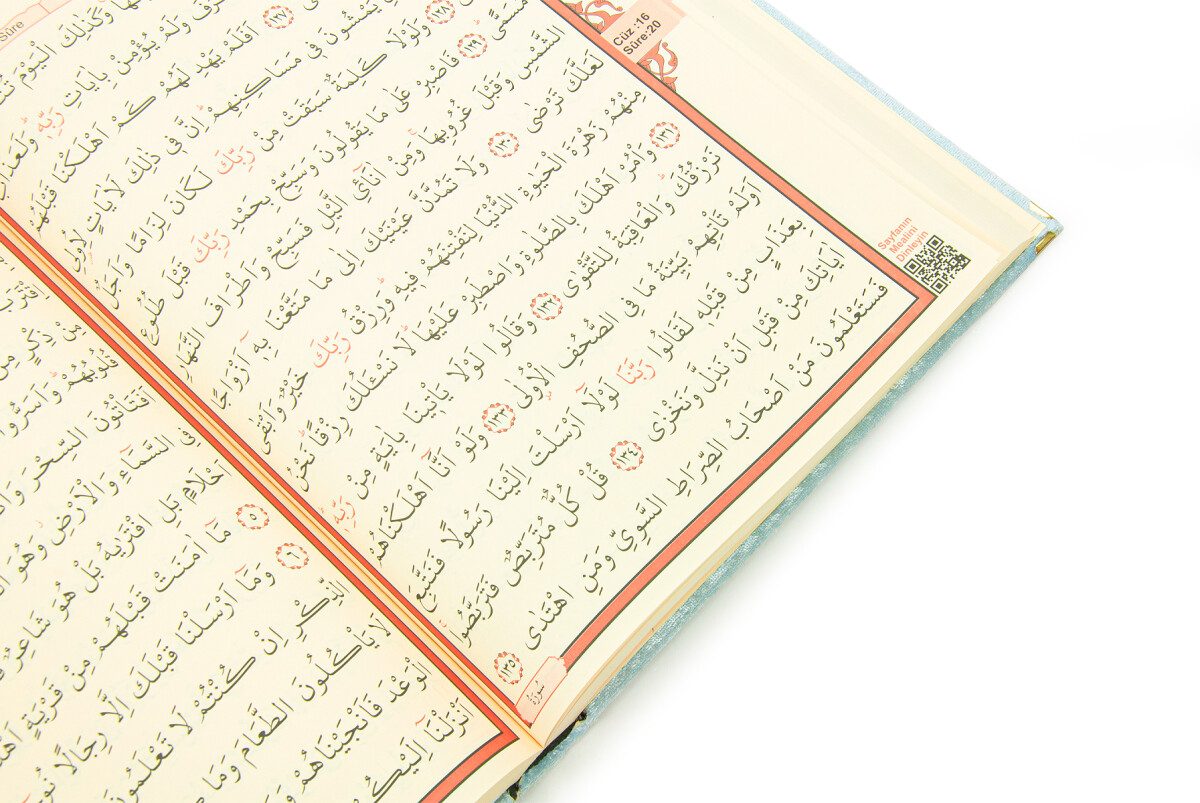 Sûre
Cüz :16
Sûre:20
وَكَذٰلِكَ الْيَوْمَ
وَلَمْ يُؤْمِنْ بِاٰيَاتِ رَبِّهٖ وَلَعَذَابُ
﴿١٢٧﴾ اَفَلَمْ يَهْدِ لَهُمْ كَمْ اَهْلَكْنَا قَبْلَهُمْ
يَمْشُونَ فٖي مَسَاكِنِهِمْ اِنَّ فٖي ذٰلِكَ لَاٰيَاتٍ لِاُولِي
﴿١٢٨﴾ وَلَوْلَا كَلِمَةٌ سَبَقَتْ مِنْ رَبِّكَ لَكَانَ لِزَامًا وَاَجَلٌ
مُسَمًّى ﴿١٢٩﴾ فَاصْبِرْ عَلٰى مَا يَقُولُونَ وَسَبِّحْ بِحَمْدِ رَبِّكَ قَبْلَ طُلُوعِ
الشَّمْسِ وَقَبْلَ غُرُوبِهَا وَمِنْ اٰنَآئِ الَّيْلِ فَسَبِّحْ وَاَطْرَافَ النَّهَارِ
لَعَلَّكَ تَرْضٰى ﴿١٣٠﴾ وَلَا تَمُدَّنَّ عَيْنَيْكَ اِلٰى مَا مَتَّعْنَا بِهٖٓ اَزْوَاجًا
مِنْهُمْ زَهْرَةَ الْحَيٰوةِ الدُّنْيَا لِنَفْتِنَهُمْ فٖيهِ وَرِزْقُ رَبِّكَ خَيْرٌ وَاَبْقٰى
﴿١٣١﴾ وَاْمُرْ اَهْلَكَ بِالصَّلٰوةِ وَاصْطَبِرْ عَلَيْهَا لَا نَسْـَٔلُكَ رِزْقًا نَحْنُ
نَرْزُقُكَ وَالْعَاقِبَةُ لِلتَّقْوٰى ﴿١٣٢﴾ وَقَالُوا لَوْلَا يَاْتٖينَا بِاٰيَةٍ مِنْ رَبِّهٖ
اَوَلَمْ تَاْتِهِمْ بَيِّنَةُ مَا فِي الصُّحُفِ الْاُولٰى ﴿١٣٣﴾ وَلَوْ اَنَّٓا اَهْلَكْنَاهُمْ
بِعَذَابٍ مِنْ قَبْلِهٖ لَقَالُوا رَبَّنَا لَوْلَٓا اَرْسَلْتَ اِلَيْنَا رَسُولًا فَنَتَّبِعَ
اٰيَاتِكَ مِنْ قَبْلِ اَنْ نَذِلَّ وَنَخْزٰى ﴿١٣٤﴾ قُلْ كُلٌّ مُتَرَبِّصٌ فَتَرَبَّصُوا
فَسَتَعْلَمُونَ مَنْ اَصْحَابُ الصِّرَاطِ السَّوِيِّ وَمَنِ اهْتَدٰى ﴿١٣٥﴾
سُورَةُ
Sayfanın
Mealini
Dinleyin
اِقْتَرَبَ
ذِكْرٍ مِنْ
قُلُوبُهُمْ وَاَسَرُّوا
اَفَتَاْتُونَ السِّحْرَ
فِي السَّمَٓاءِ وَالْاَرْضِ وَهُوَ
اَحْلَامٍ بَلِ افْتَرٰيهُ بَلْ هُوَ شَاعِرٌ
﴿٥﴾ مَٓا اٰمَنَتْ قَبْلَهُمْ مِنْ قَرْيَةٍ
﴿٦﴾ وَمَٓا اَرْسَلْنَا قَبْلَكَ اِلَّا رِجَالًا
الذِّكْرِ اِنْ كُنْتُمْ لَا تَعْلَمُونَ
لَا يَاْكُلُونَ الطَّعَامَ وَمَا
الْوَعْدَ فَاَنْجَيْنَاهُمْ
اَنْزَلْنَٓا اِلَيْكُمْ